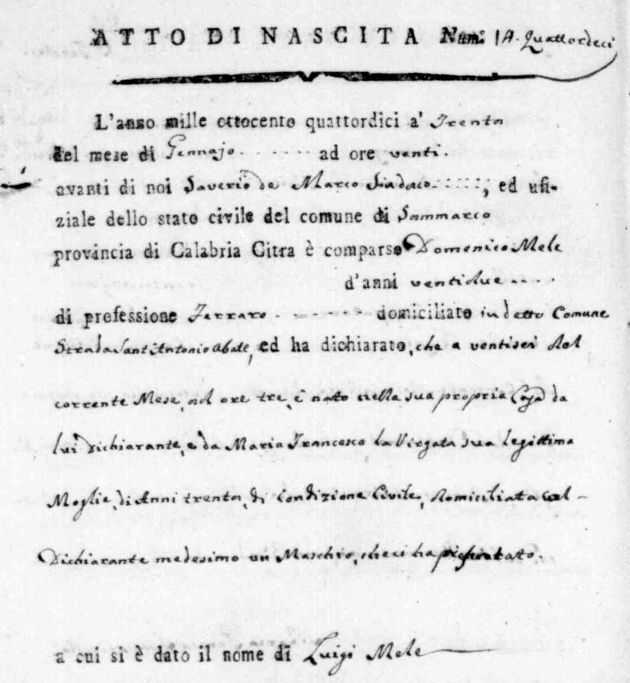 ATTO DI NASCITA Num: 14. Quattordeci
L'anno mille ottocento quattordici a' Trenta
del mese di Gennajo ad ore venti.
avanti di noi Saverio de Marco Sindaco, ed ufi-
ziale dello stato civile del comune di Sammarco
provincia di Calabria Citra è comparso Domenico Mele
d'anni ventidue
di professione Ferraro domiciliato in detto Comune
Strada Sant'Antonio Abate, ed ha dichiarato, che a ventisei del
corrente Mese, ad ore tre, è nato nella sua propria Casa da
lui Dichiarante, e da Maria Francesca La Virgata sua legittima
Moglie, di Anni trenta, di condizione Civile, domiciliata col
Dichiarante medesimo un Maschio, che ci ha presentato.
a cui si è dato il nome di Luigi Mele